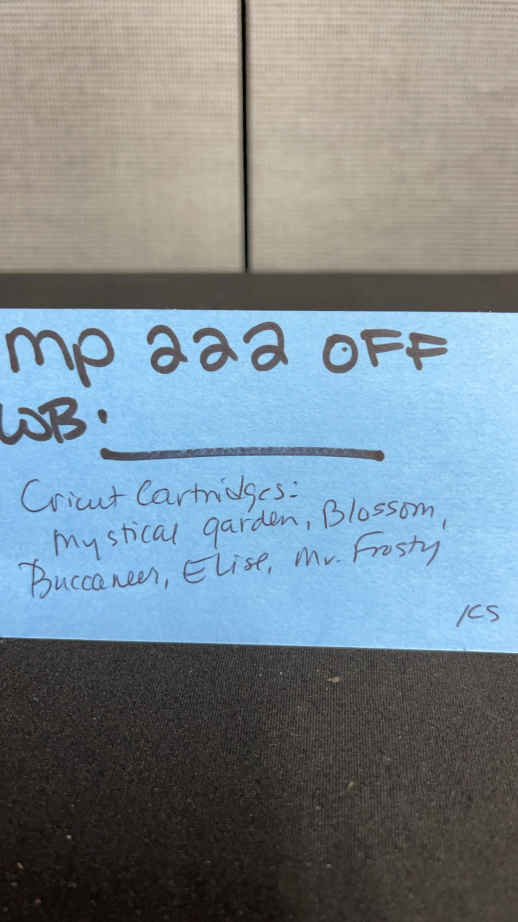 mp 222 OFF
WB:
Cricut Cartridges:
Mystical garden, Blossom,
Buccaneer, Elise, Mr. Frosty
KS